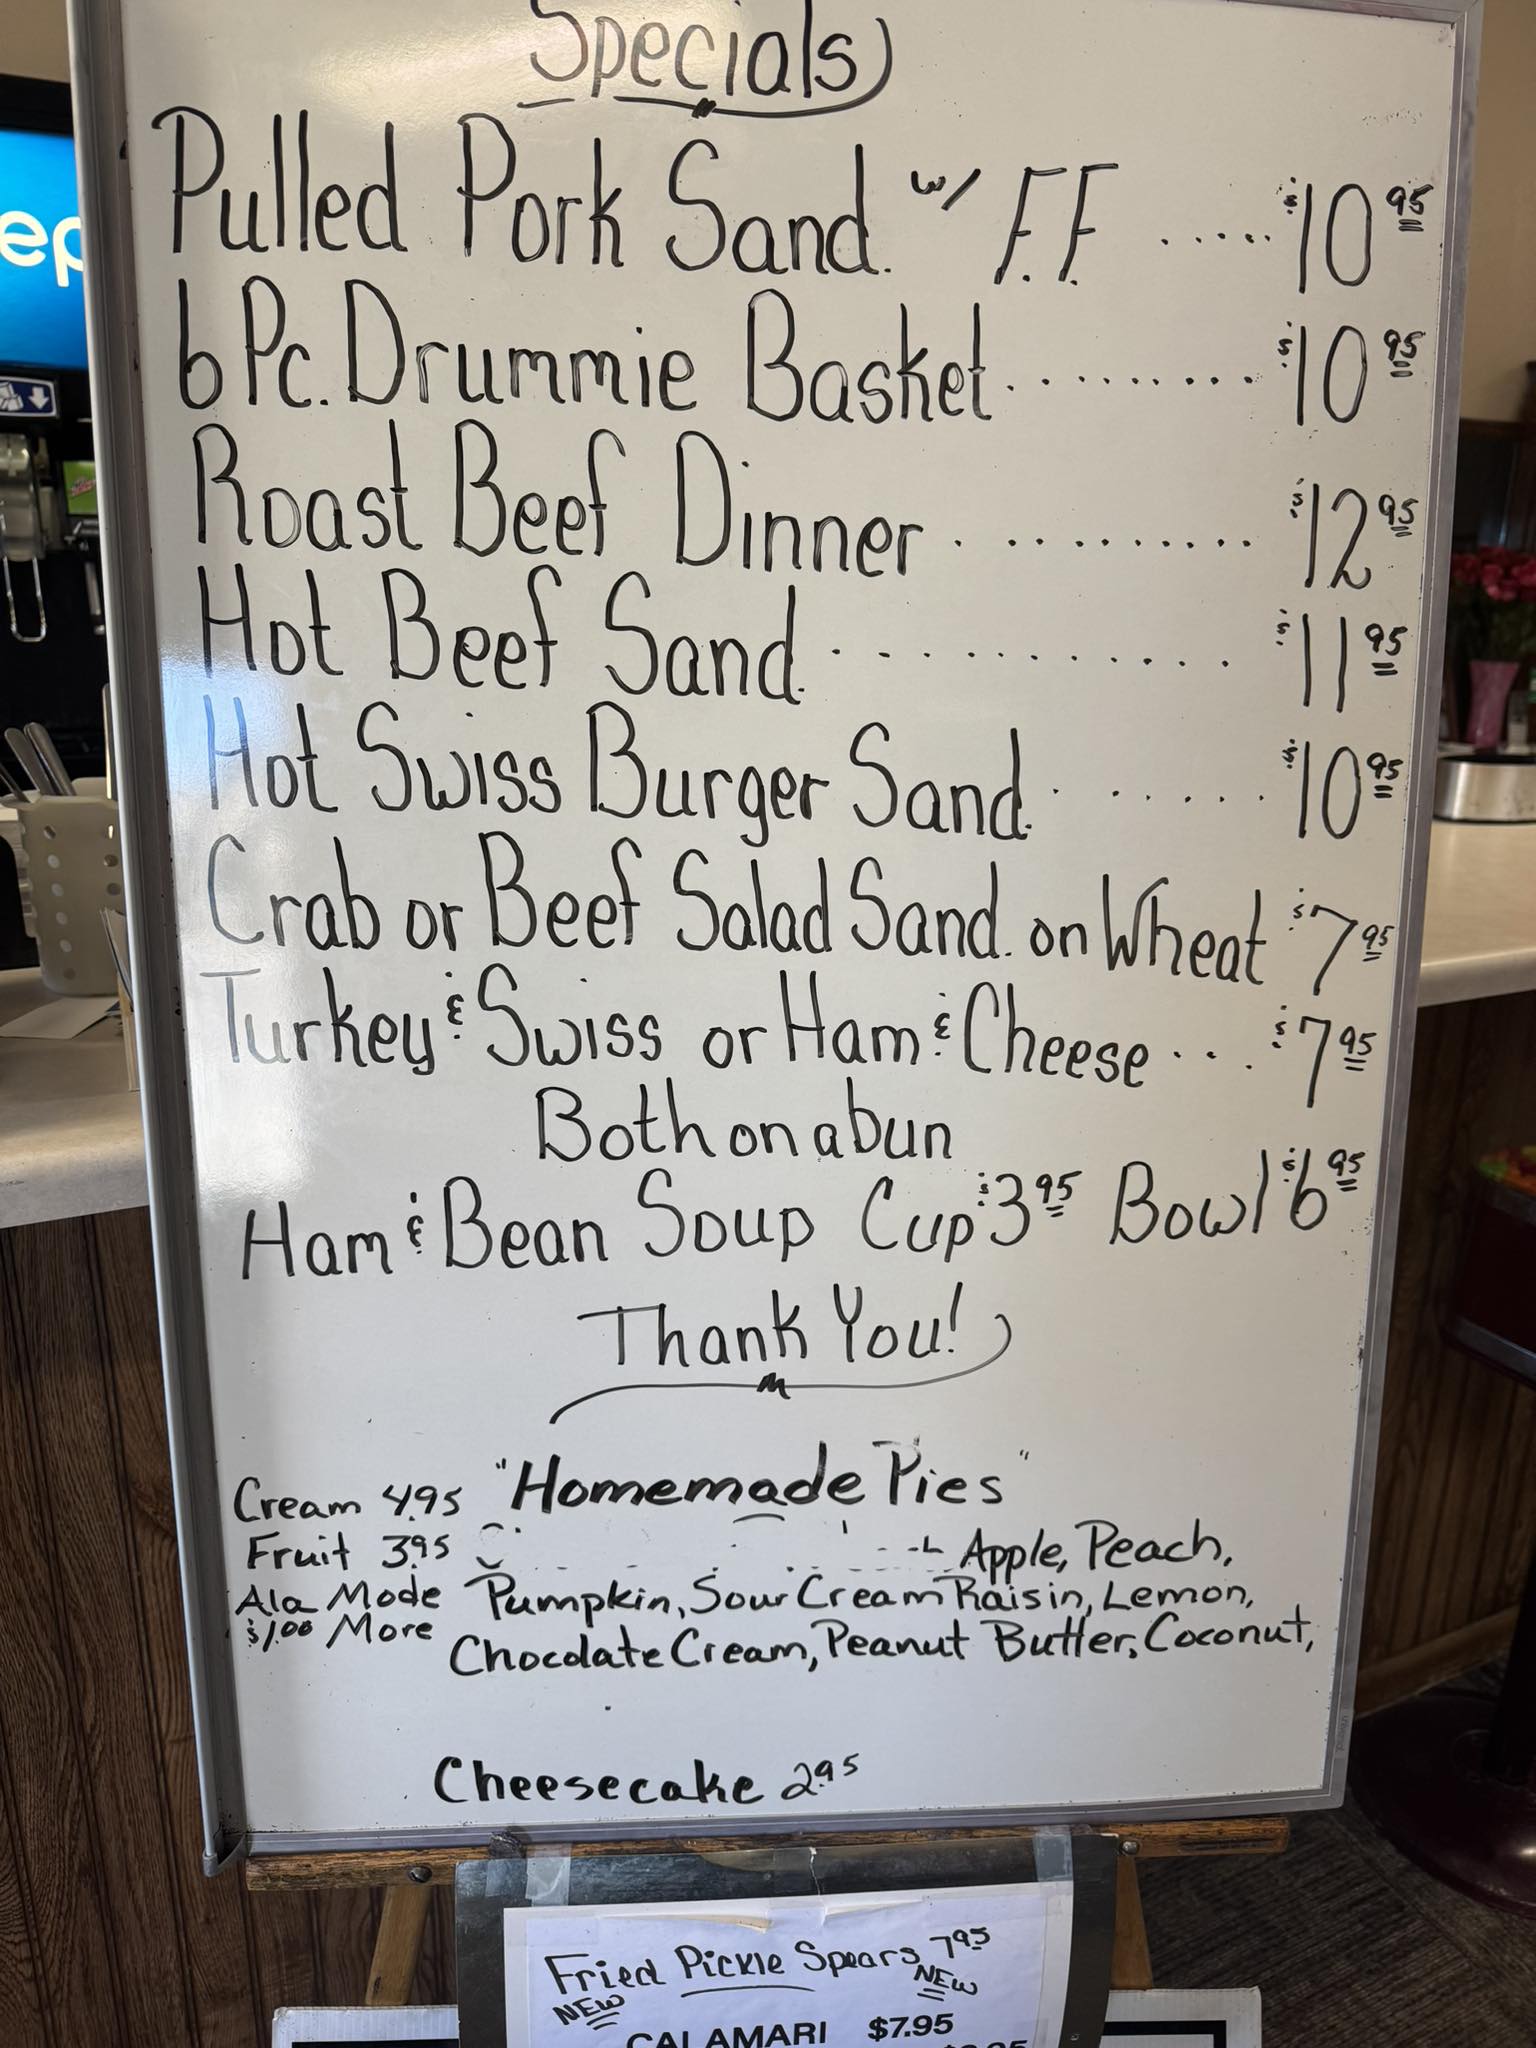 Specials
Pulled Pork Sand. w/ F.F. ..... $10 95
6 Pc. Drummie Basket.......... $10 95
Roast Beef Dinner ........... $12 95
Hot Beef Sand. ............ $11 95
Hot Swiss Burger Sand. ....... $10 95
Crab or Beef Salad Sand. on Wheat $7 95
Turkey & Swiss or Ham & Cheese ... $7 95
Both on a bun
Ham & Bean Soup Cup $3 95 Bowl $6 95
Thank You!
"Homemade Pies"
Cream 4.95
Fruit 3.95
Ala Mode
$1.00 More
Apple, Peach,
Pumpkin, Sour Cream Raisin, Lemon,
Chocolate Cream, Peanut Butter, Coconut,
Cheesecake 2.95
Fried Pickle Spears 7.95
NEW NEW
CALAMARI $7.95
ep